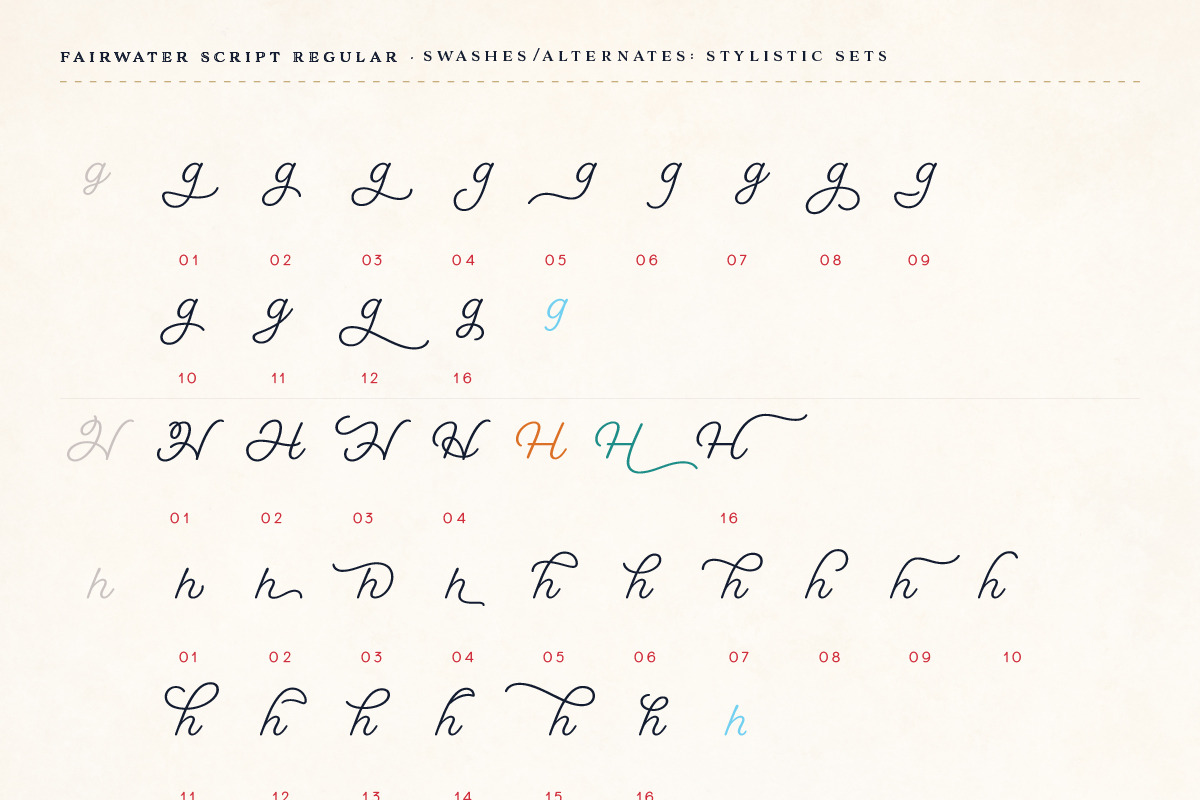 FAIRWATER SCRIPT REGULAR · SWASHES/ALTERNATES: STYLISTIC SETS
g g g g g g g g g g
01 02 03 04 05 06 07 08 09
g g g g g
10 11 12 16
H H H H H H H H
01 02 03 04 16
h h h h h h h h h h h
01 02 03 04 05 06 07 08 09 10
h h h h h h h
11 12 13 14 15 16